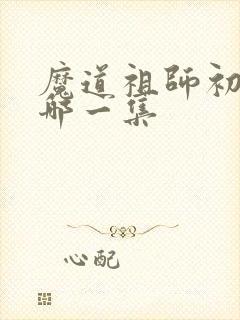 魔道祖師初
哪一集
心配